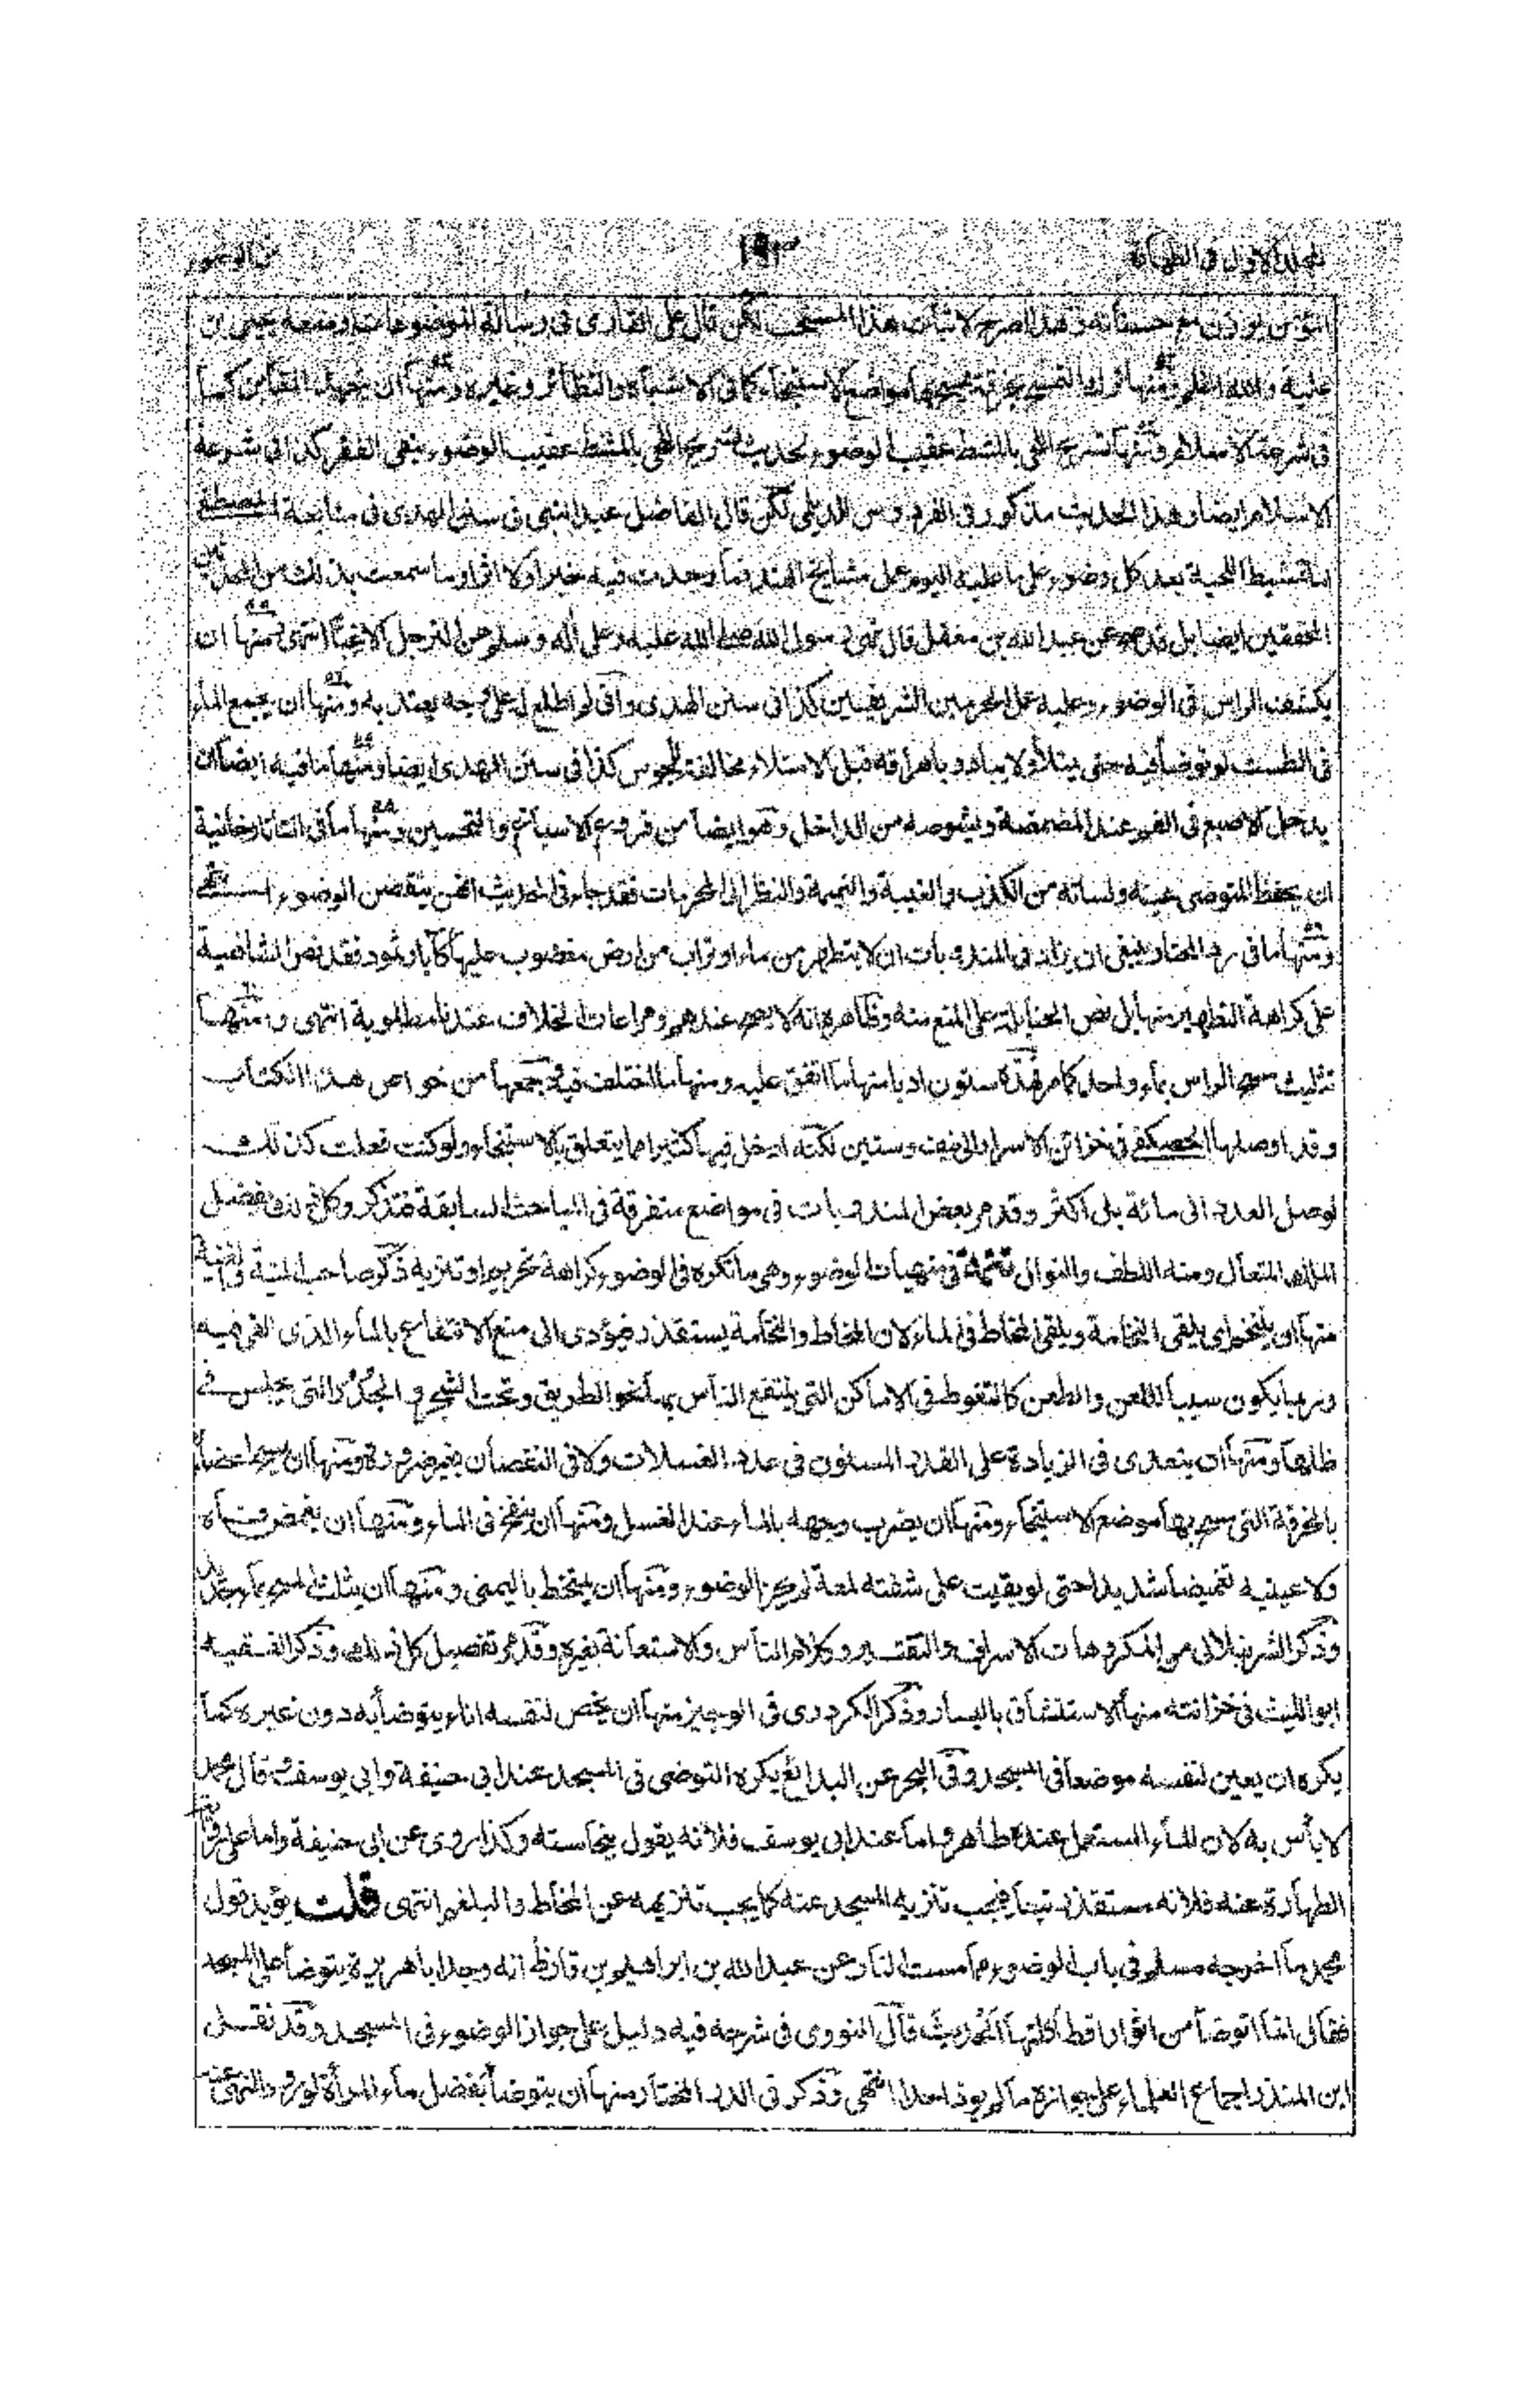 المجلد الاول فى الطهارة ١٩٣ من الوضوء
يوزن مع حسناته وهذا صريح لاثبات هذا المستحب لكن قال على القارى فى رسالة الموضوعات
عليه والله اعلم ومنها ترك التمسح بخرقة يمسح بها موضع الاستنجاء كما فى الاشباه والنظائر وغيره ومنها ان كما
فى شرعة الاسلام ومنها تسريح اللحى بالمشط عقيب الوضوء لحديث تسريح اللحى بالمشط عقيب الوضوء ينفى الفقر كذا فى شرعة
الاسلام ايضا وهذا الحديث مذكور فى الفردوس الديلمى لكن قال الفاضل عبد النبى فى سنن الهدى فى متابعة المصطفى
اما تمشيط اللحية بعد كل وضوء على ما عليه اليوم عمل مشايخ الهند فما وجدت فيه خبرا ولا اثرا وما سمعت بذلك من المحدثين
المحققين ايضا بل قد صح عن عبد الله بن مغفل قال نهى رسول الله صلى الله عليه وعلى آله وسلم عن الترجل الا غبا انتهى ومنها ان
يكشف الراس فى الوضوء وعليه عمل الحرمين الشريفين كذا فى سنن الهدى وانى لم اطلع له على وجه يعتد به ومنها ان يجمع الماء
فى الطست لو توضأ فيه حتى يمتلأ ولا يبادر باهراقه قبل الامتلاء مخالفة للمجوس كذا فى سنن الهدى ايضا ومنها ما فيه ايضا ان
يدخل الاصبع فى الفم عند المضمضة ويشوصه من الداخل وهو ايضا من فروع الاسباغ والتحسين ومنها ما فى التاتارخانية
ان يحفظ المتوضى عينه ولسانه من الكذب والغيبة والنميمة والنظر الى المحرمات فقد جاء فى الحديث انهن ينقضن الوضوء انتهى
ومنها ما فى رد المحتار ينبغى ان يزاد فى المندوبات ان لا يتطهر من ماء او تراب من ارض مغضوب عليها كآبار ثمود فقد نص الشافعية
على كراهة التطهير منها بل نص الحنابلة على المنع منه وظاهره انه لا يصح عندهم ومراعات الخلاف عندنا مطلوبة انتهى ومنها
تثليث مسح الراس بماء واحد كما مر فهذه ستون ادبا منها ما اتفق عليه ومنها ما اختلف فيه جمعها من خواص هذا الكتاب
وقد اوصلها الحصكفى فى خزائن الاسرار الى نيف وستين لكنه ادخل فيها كثيرا مما يتعلق بالاستنجاء ولو كنت فعلت كذلك
لوصل العدد الى مائة بل اكثر وقد مر بعض المندوبات فى مواضع متفرقة فى المباحث السابقة فتذكر وكل ذلك بفضل
الملك المتعال ومنه اللطف والنوال تتمة فى منهيات الوضوء وهى ما تكره فى الوضوء كراهة تحريم او تنزيه ذكر صاحب المنية فى الغنية
منها ان يتنخم اى يلقى النخامة ويلقى المخاط فى الماء لان المخاط والنخامة يستقذر فيؤدى الى منع الانتفاع بالماء الذى القى فيه
وربما يكون سببا للعن والطعن كالتغوط فى الاماكن التى ينتفع الناس بها نحو الطريق وتحت الشجر والجدر التى يجلس فى
ظلها ومنها ان يتعدى فى الزيادة على القدر المسنون فى عدد الغسلات ولا فى النقصان بغير ضرورة ومنها ان يمسح اعضاءه
بالخرقة التى مسح بها موضع الاستنجاء ومنها ان يضرب وجهه بالماء عند الغسل ومنها ان ينفخ فى الماء ومنها ان يغمض فاه
ولا عينيه تغميضا شديدا حتى لو بقيت على شفته لمعة لم يجز الوضوء ومنها ان يتمخط باليمنى ومنها ان يثلث المسح بماء جديد
وذكر الشرنبلالى من المكروهات الاسراف والتقتير وكلام الناس والاستعانة بغيره وقد مر تفصيل كل ذلك وذكر الفقيه
ابو الليث فى خزانته منها الاستنشاق باليسار وذكر الكردرى فى الوجيز منها ان يخص لنفسه اناء يتوضأ به دون غيره كما
يكره ان يعين لنفسه موضعا فى المسجد وفى البحر عن البدائع يكره التوضى فى المسجد عند ابى حنيفة وابى يوسف قال محمد
لا بأس به لان الماء المستعمل عنده طاهر واما عند ابى يوسف فلانه يقول بنجاسته وكذا روى عن ابى حنيفة واما على رواية
الطهارة عنه فلانه مستقذر فيجب تنزيه المسجد عنه كما يجب تنزيهه عن المخاط والبلغم انتهى قلت يؤيد قول
محمد ما اخرجه مسلم فى باب الوضوء مما مست النار عن عبد الله بن ابراهيم بن قارظ انه وجد ابا هريرة يتوضأ على المسجد
فقال انما اتوضأ من اثوار اقط اكلتها الحديث قال النووى فى شرحه فيه دليل على جواز الوضوء فى المسجد وقد نقل
ابن المنذر اجماع العلماء على جوازه ما لم يوذ احدا انتهى وذكر فى الدر المختار منها ان يتوضأ بفضل ماء المرأة لورود النهى عنه